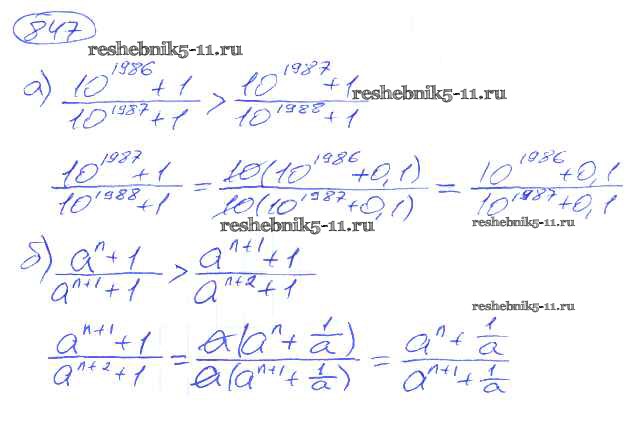 847
reshebnik5-11.ru
а) (10^1986 + 1)/(10^1987 + 1) > (10^1987 + 1)/(10^1988 + 1)
reshebnik5-11.ru
(10^1987 + 1)/(10^1988 + 1) = (10(10^1986 + 0,1))/(10(10^1987 + 0,1)) = (10^1986 + 0,1)/(10^1987 + 0,1)
reshebnik5-11.ru
reshebnik5-11.ru
б) (a^n + 1)/(a^(n+1) + 1) > (a^(n+1) + 1)/(a^(n+2) + 1)
reshebnik5-11.ru
(a^(n+1) + 1)/(a^(n+2) + 1) = (a(a^n + 1/a))/(a(a^(n+1) + 1/a)) = (a^n + 1/a)/(a^(n+1) + 1/a)